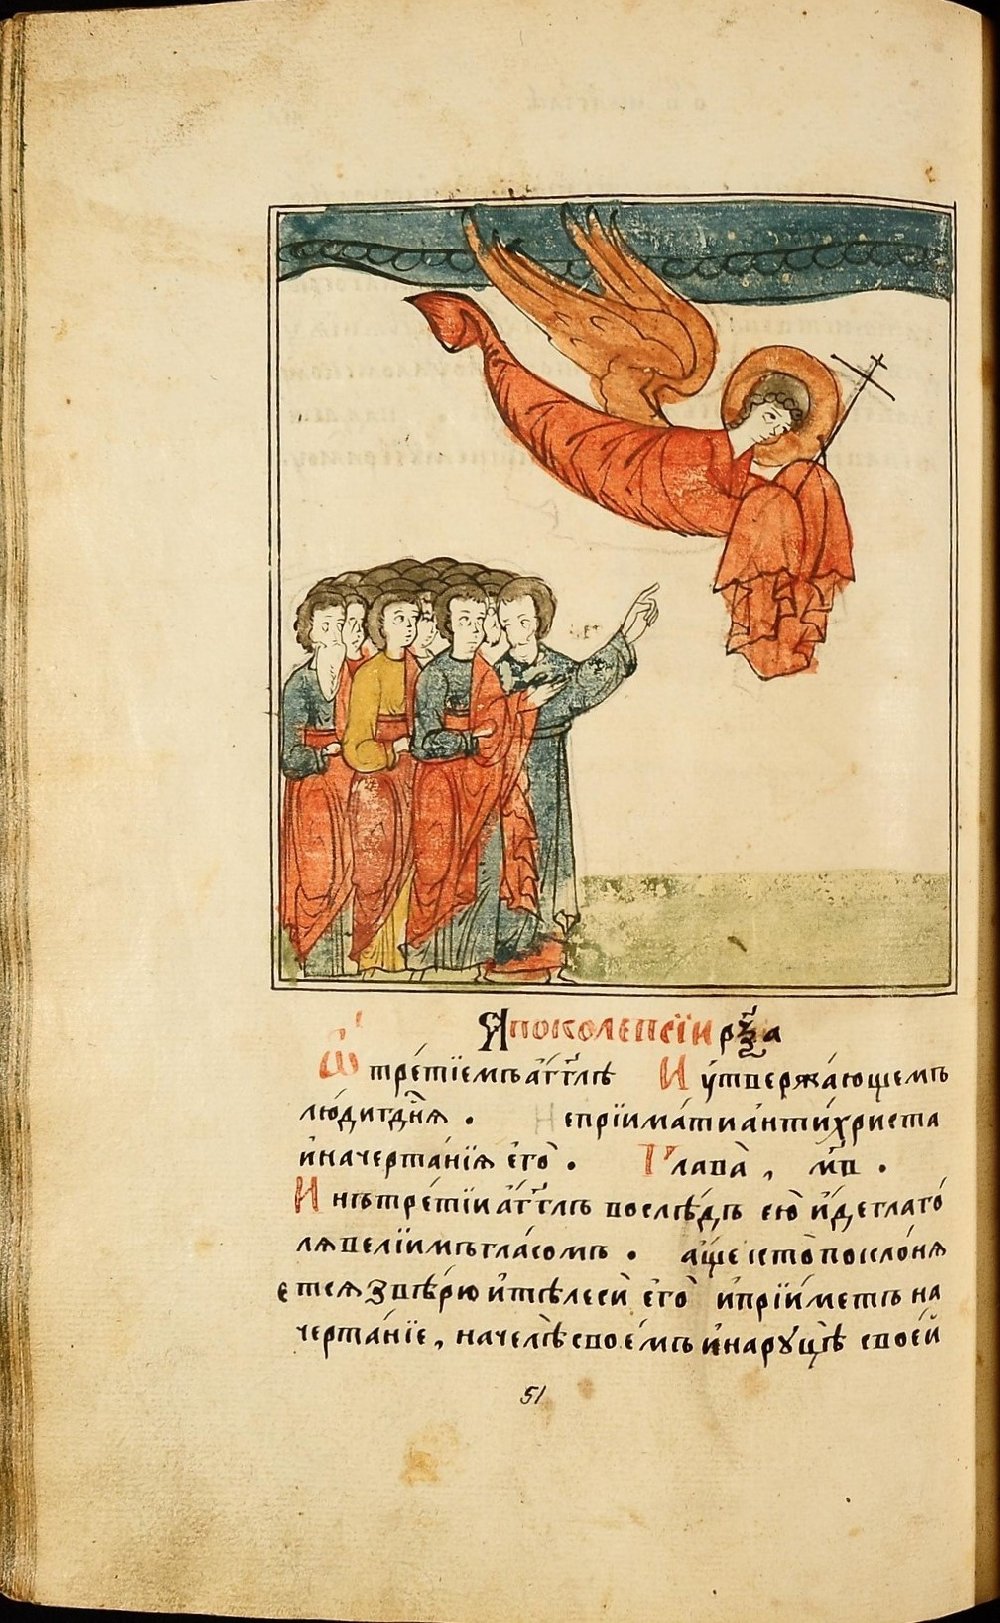 Апоколепсїи
Ѿ трéтїемъ а́гг҃лѣ И у҆твержа́ющемъ
лю́ди гдн҃я . Непрїима́ти а҆нти́христа
и҆ начерта́нїя е҆го̀ . Глава̀ , м҃в .
И нъ трéтїи а҆́гг҃лъ вослѣ́дъ ею̀ и҆́де глаго́
ля велїимъ гла́сомъ . а҆́ще кто̀ покло́ня
етея звѣ́рю и҆ тѣлеси̂ е҆го̀ и҆ прїи́метъ на
черта́нїе , на челѣ̀ свое́мъ и҆ на руцѣ̀ свое́й
51